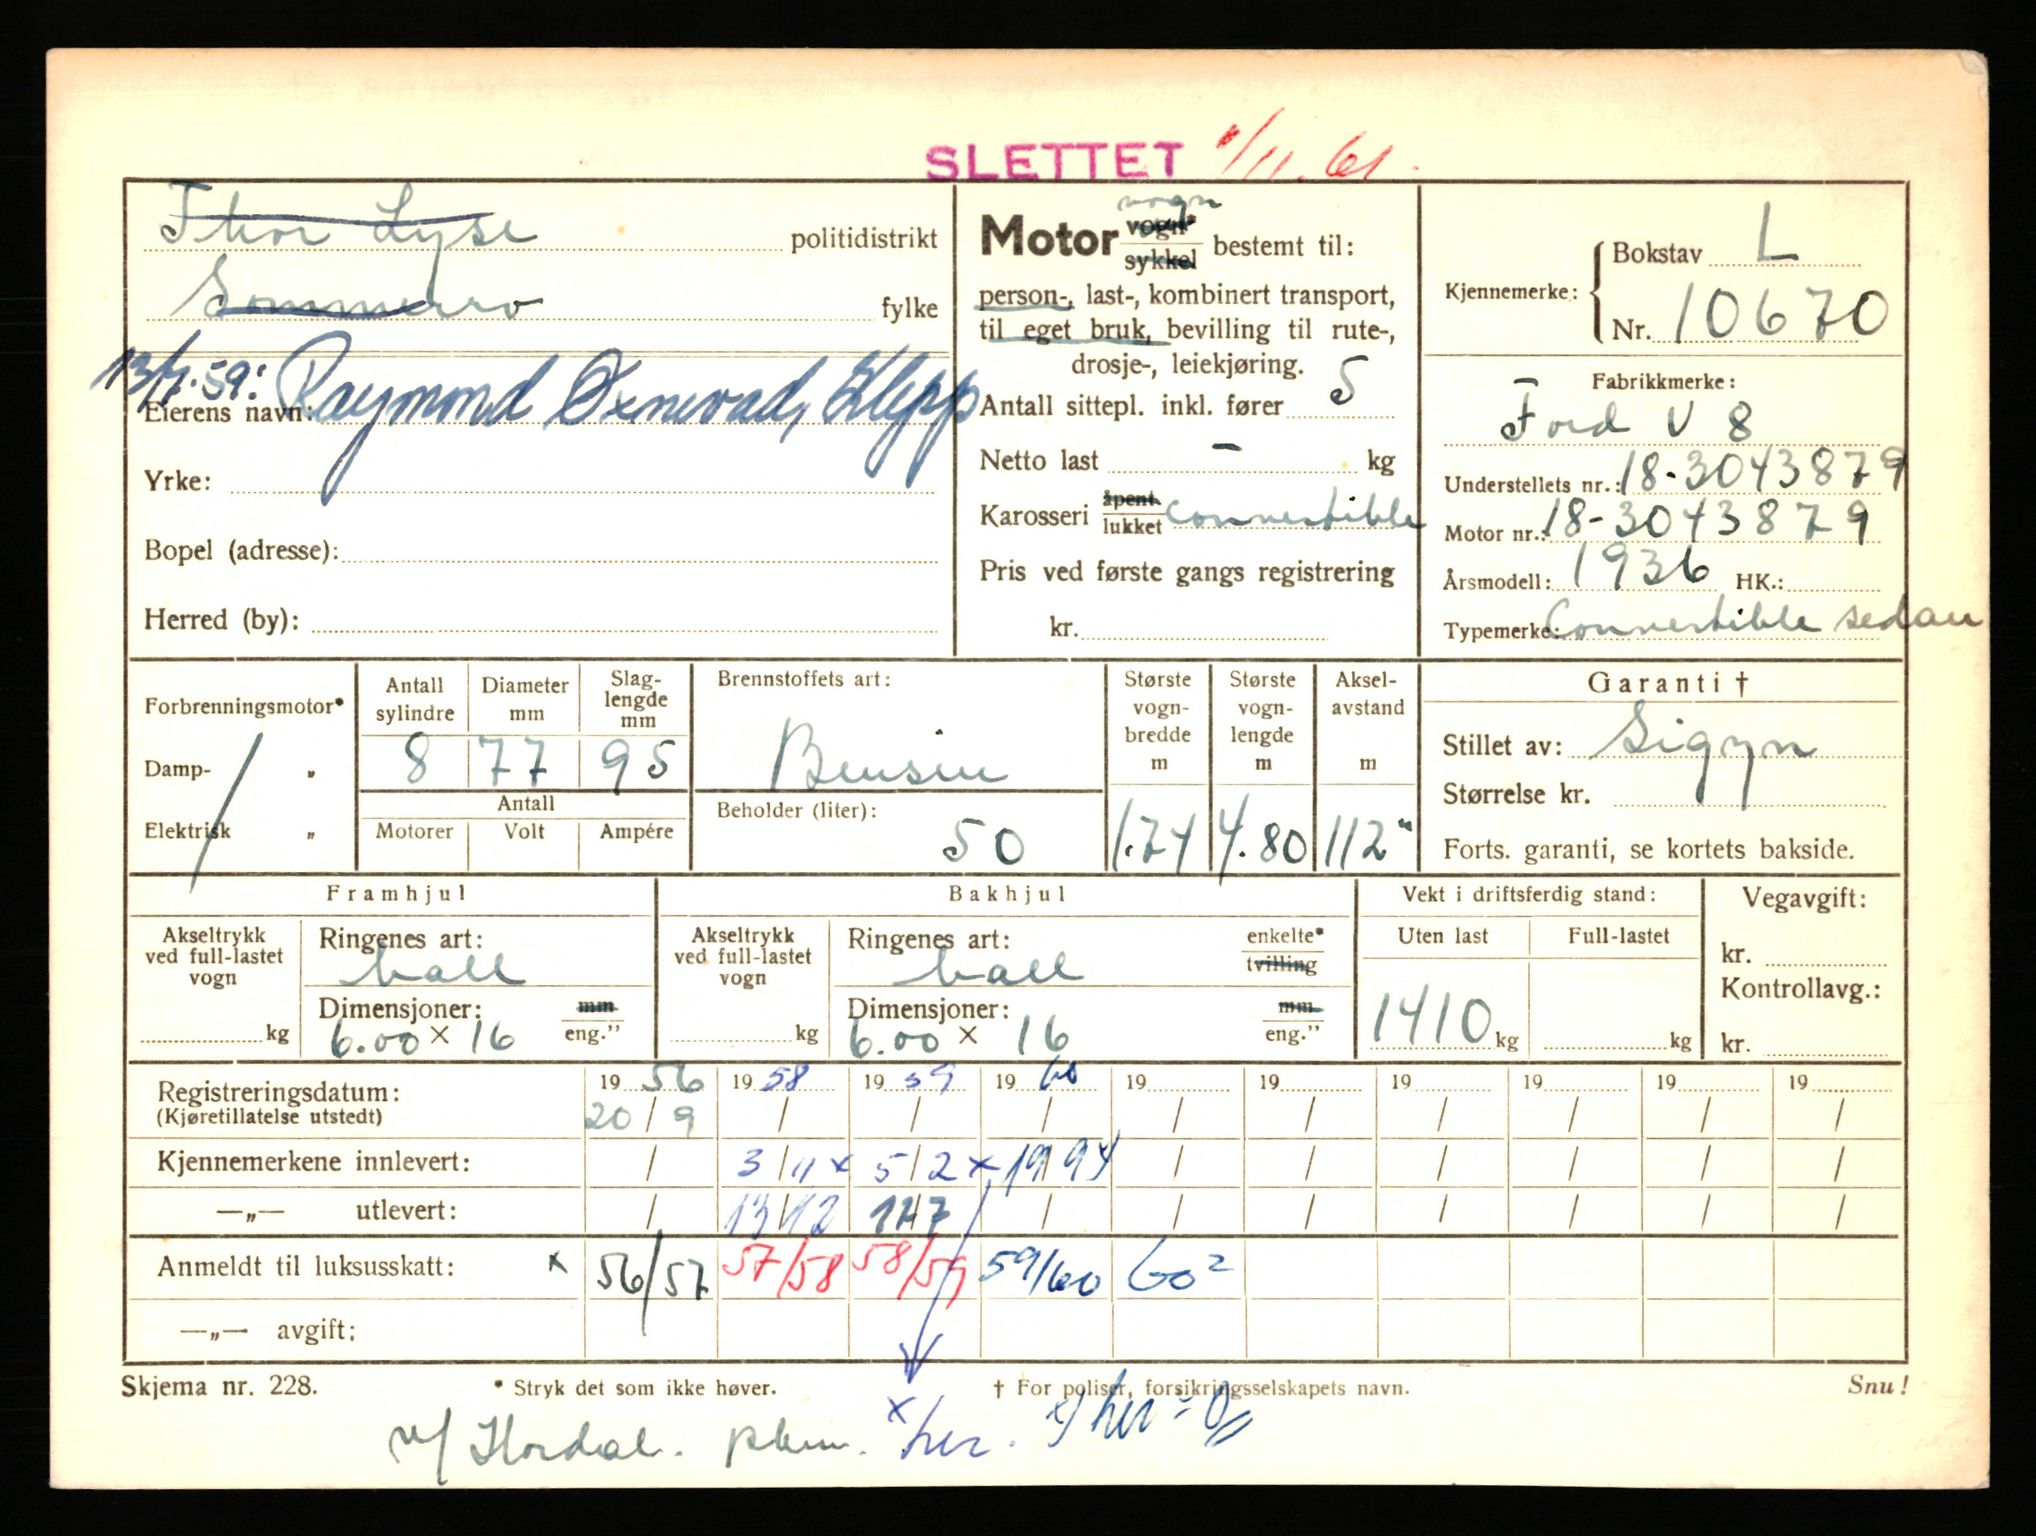 SLETTET /11. 61.
Thor Lyse politidistrikt
Sømmerro fylke
13/7. 59: Raymond Oxnevad, Klepp
Eierens navn:
Yrke:
Bopel (adresse):
Herred (by):
Motor vogn
vogn* sykkel bestemt til:
person-, last-, kombinert transport,
til eget bruk, bevilling til rute-,
drosje-, leiekjøring.
Antall sittepl. inkl. fører 5
Netto last - kg
Karosseri åpent lukket convertible
Pris ved første gangs registrering
kr.
Kjennemerke: Bokstav L
Nr. 10670
Fabrikkmerke:
Ford V 8
Understellets nr.: 18-3043879
Motor nr.: 18-3043879
Årsmodell: 1936 HK.:
Typemerke: Convertible sedan
Forbrenningsmotor*
Damp- „
Elektrisk „
Antall sylindre 8
Diameter mm 77
Slaglengde mm 95
Antall
Motorer Volt Ampére
Brennstoffets art:
Bensin
Beholder (liter):
50
Største vogn-bredde m 1.74
Største vogn-lengde m 4.80
Aksel-avstand m 112"
Garanti †
Stillet av: Sigyn
Størrelse kr.
Forts. garanti, se kortets bakside.
Framhjul
Akseltrykk ved full-lastet vogn
kg
Ringenes art:
ball
Dimensjoner: mm eng.”
6.00 × 16
Bakhjul
Akseltrykk ved full-lastet vogn
kg
Ringenes art: enkelte* tvilling
ball
Dimensjoner: mm. eng.”
6.00 × 16
Vekt i driftsferdig stand:
Uten last Full-lastet
1410 kg kg
Vegavgift:
kr.
Kontrollavg.:
kr.
Registreringsdatum: 19 56 19 58 19 59 19 60 19 19 19 19 19 19
(Kjøretillatelse utstedt) 20/9 / / / / / / / / /
Kjennemerkene innlevert: / 3/11 x 5/2 x 19/9 4 / / / / / /
—„— utlevert: / 13/12 17/7 / / / / / / /
Anmeldt til luksusskatt: x 56/57 57/58 58/59 59/60 60²
—„— avgift:
Skjema nr. 228. * Stryk det som ikke høver. † For poliser, forsikringsselskapets navn. Snu!
x her.